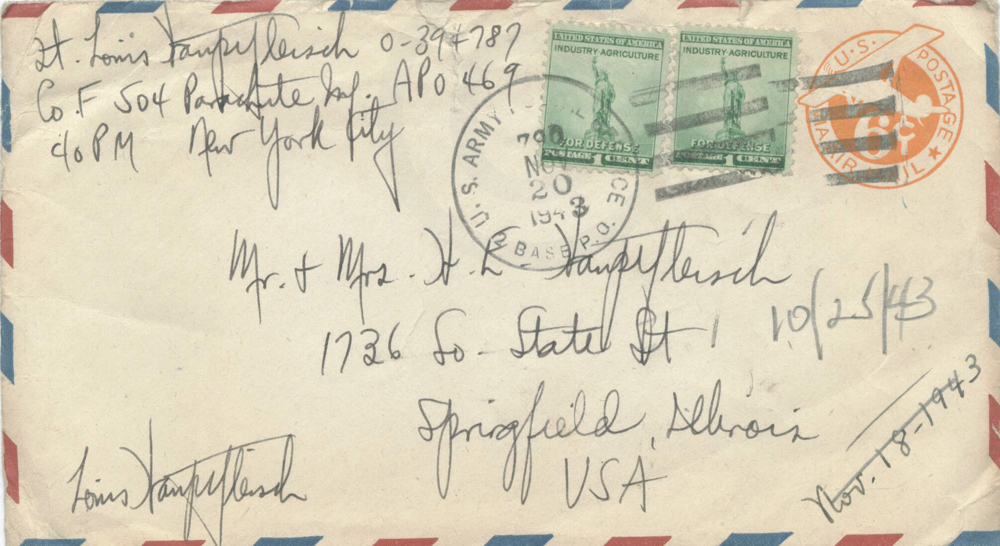 Lt. Louis Hauptfleisch O-394787
Co. F 504 Parachute Inf. APO 469
℅ PM New York City
UNITED STATES OF AMERICA
INDUSTRY·AGRICULTURE
FOR DEFENSE
POSTAGE 1 CENT
UNITED STATES OF AMERICA
INDUSTRY·AGRICULTURE
FOR DEFENSE
POSTAGE 1 CENT
U.S. POSTAGE
6¢
AIR MAIL
U. S. ARMY
NOV
20
1943
2 BASE P.O.
Mr. + Mrs. H. L. Hauptfleisch
1736 So. State St
10/25/43
Springfield, Illinois
USA
Nov. 18-1943
Louis Hauptfleisch